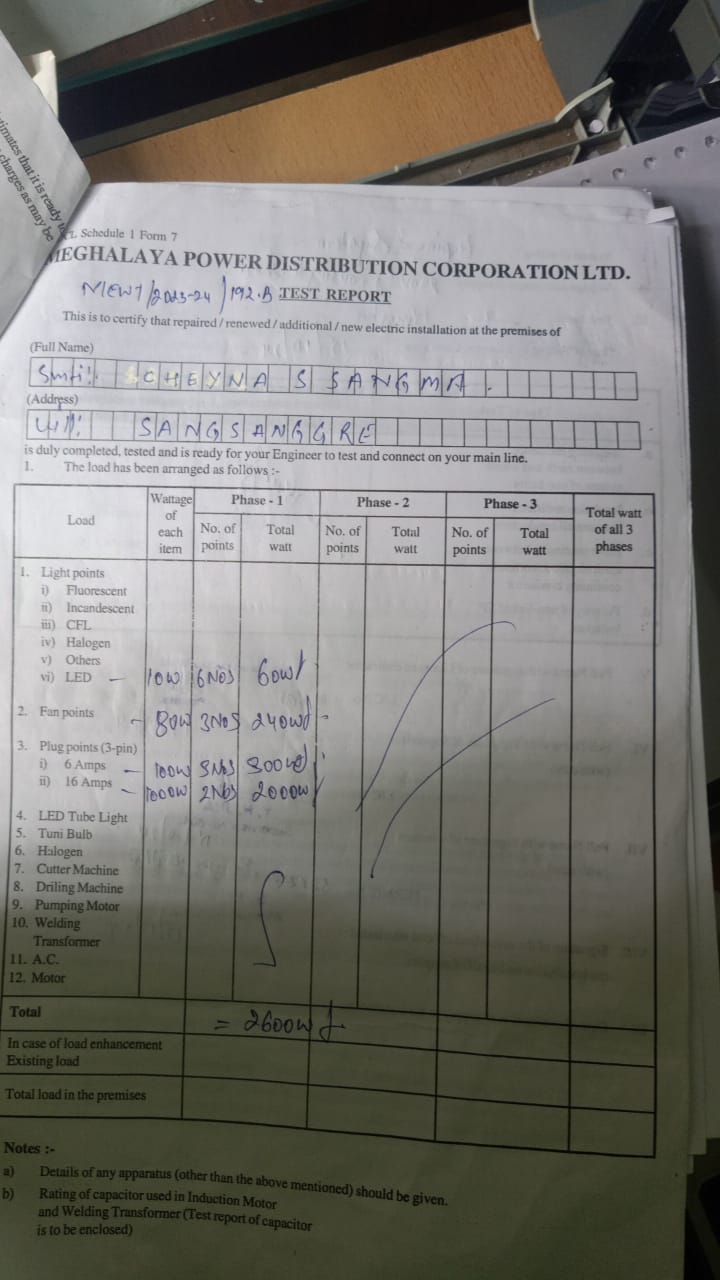 timates that it is ready
charges as may be
Schedule 1 Form 7
MEGHALAYA POWER DISTRIBUTION CORPORATION LTD.
/2023-24/192.B TEST REPORT
This is to certify that repaired / renewed / additional / new electric installation at the premises of
(Full Name)
Smti: CHEYNA S SANGMA.
(Address)
Vill: SANGSANGGRE
is duly completed, tested and is ready for your Engineer to test and connect on your main line.
1. The load has been arranged as follows :-
Load Wattage of each item Phase - 1 Phase - 2 Phase - 3 Total watt of all 3 phases
No. of points Total watt No. of points Total watt No. of points Total watt
1. Light points
i) Fluorescent
ii) Incandescent
iii) CFL
iv) Halogen
v) Others
vi) LED - 10W 6NoS 60wt
2. Fan points - 80W 3NoS 240wt -
3. Plug points (3-pin)
i) 6 Amps - 100W 3NoS 300wt
ii) 16 Amps - 1000W 2NoS 2000w
4. LED Tube Light
5. Tuni Bulb
6. Halogen
7. Cutter Machine
8. Driling Machine
9. Pumping Motor
10. Welding
Transformer
11. A.C.
12. Motor
Total = 2600w
In case of load enhancement
Existing load
Total load in the premises
Notes :-
a) Details of any apparatus (other than the above mentioned) should be given.
b) Rating of capacitor used in Induction Motor
and Welding Transformer (Test report of capacitor
is to be enclosed)